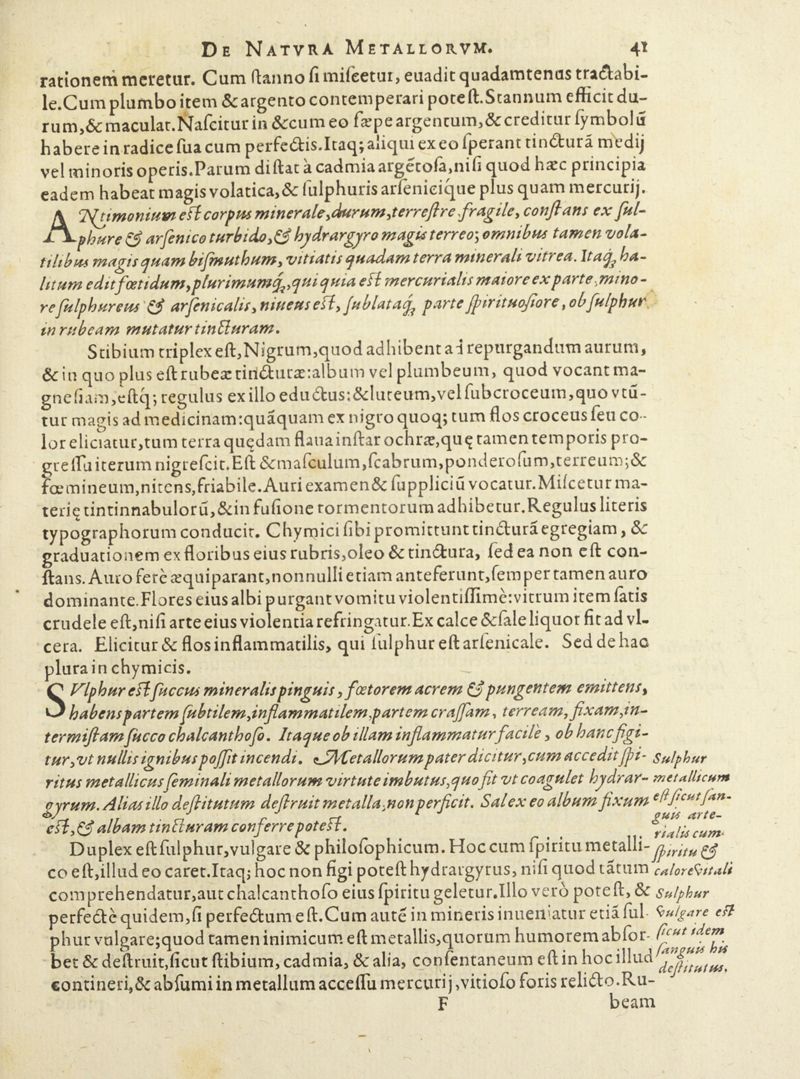 DE NATVRA METALLORVM. 41
rationem meretur. Cum ſtanno ſi miſcetur, euadit quadamtenus tractabi-
le. Cum plumbo item & argento contemperari poteſt. Stannum efficit du-
rum, & maculat. Naſcitur in & cum eo ſæpe argentum, & creditur ſymbolũ
habere in radice ſua cum perfectis. Itaq; aliqui ex eo ſperant tincturã medij
vel minoris operis. Parum diſtat à cadmia argẽtoſa, niſi quod hæc principia
eadem habeat magis volatica, & ſulphuris arſenicique plus quam mercurij.
ANtimonium eſt corpus minerale, durum, terreſtre fragile, conſtans ex ſul-
phure & arſenico turbido, & hydrargyro magis terreo; omnibus tamen vola-
tilibus magis quam biſmuthum, vitiatis quadam terra minerali vitrea. Itaq; ha-
litum edit fœtidum, plurimumq;, qui quia eſt mercurialis maiore ex parte, mino-
re ſulphureus & arſenicalis, niueus eſt, ſublataq; parte ſpirituoſiore, ob ſulphur
in rubeam mutatur tincturam.
Stibium triplex eſt, Nigrum, quod adhibent ad repurgandum aurum,
& in quo plus eſt rubeæ tincturæ: album vel plumbeum, quod vocant ma-
gneſiam, eſtq; regulus ex illo eductus: & luteum, vel ſubcroceum, quo vtũ-
tur magis ad medicinam: quãquam ex nigro quoq; tum flos croceus ſeu co-
lor eliciatur, tum terra quędam flaua inſtar ochræ, quę tamen temporis pro-
greſſu iterum nigreſcit. Eſt & maſculum, ſcabrum, ponderoſum, terreum; &
fœmineum, nitens, friabile. Auri examen & ſuppliciũ vocatur. Miſcetur ma-
terię tintinnabulorũ, & in fuſione tormentorum adhibetur. Regulus literis
typographorum conducit. Chymici ſibi promittunt tincturã egregiam, &
graduationem ex floribus eius rubris, oleo & tinctura, ſed ea non eſt con-
ſtans. Auro ferè æquiparant, nonnulli etiam anteferunt, ſemper tamen auro
dominante. Flores eius albi purgant vomitu violentiſſimè: vitrum item ſatis
crudele eſt, niſi arte eius violentia refringatur. Ex calce & ſale liquor fit ad vl-
cera. Elicitur & flos inflammatilis, qui ſulphur eſt arſenicale. Sed de hac
plura in chymicis.
SVlphur eſt ſuccus mineralis pinguis, fœtorem acrem & pungentem emittens,
habens partem ſubtilem, inflammatilem, partem craſſam, terream, fixam, in-
termiſtam ſucco chalcanthoſo. Itaque ob illam inflammatur facile, ob hanc figi-
tur, vt nullis ignibus poſſit incendi. Metallorum pater dicitur, cum accedit ſpi-
ritus metallicus ſeminali metallorum virtute imbutus, quo fit vt coagulet hydrar-
gyrum. Alias illo deſtitutum deſtruit metalla, non perficit. Sal ex eo album fixum
eſt, & albam tincturam conferre poteſt.
Duplex eſt ſulphur, vulgare & philoſophicum. Hoc cum ſpiritu metalli-
co eſt, illud eo caret. Itaq; hoc non figi poteſt hydrargyrus, niſi quod tãtum
comprehendatur, aut chalcanthoſo eius ſpiritu geletur. Illo verò poteſt, &
perfectè quidem, ſi perfectum eſt. Cum autẽ in mineris inueniatur etiã ſul-
phur vulgare; quod tamen inimicum eſt metallis, quorum humorem abſor-
bet & deſtruit, ſicut ſtibium, cadmia, & alia, conſentaneum eſt in hoc illud
contineri, & abſumi in metallum acceſſu mercurij, vitioſo foris relicto. Ru-
F beam
Sulphur
metallicum
eſt ſicut ſan-
guis arte-
rialis cum
ſpiritu &
calore vitali
Sulphur
vulgare eſt
ſicut idem
ſanguis his
deſtitutus.